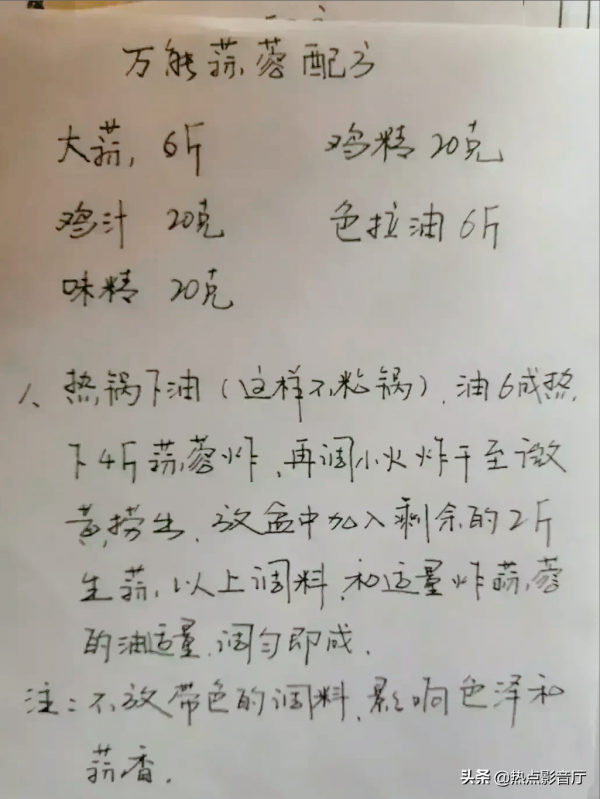 万能蒜蓉配方
大蒜, 6斤 鸡精 20克
鸡汁 20克 色拉油 6斤
味精 20克
1、热锅下油(这样不粘锅), 油6成热,
下4斤蒜蓉炸, 再调小火炸干至微
黄,捞出, 放盆中加入剩余的2斤
生蒜, 以上调料, 和适量炸蒜蓉
的油适量, 调匀即成.
注:不放带色的调料,影响色泽和
蒜香.
头条 @热点影音厅